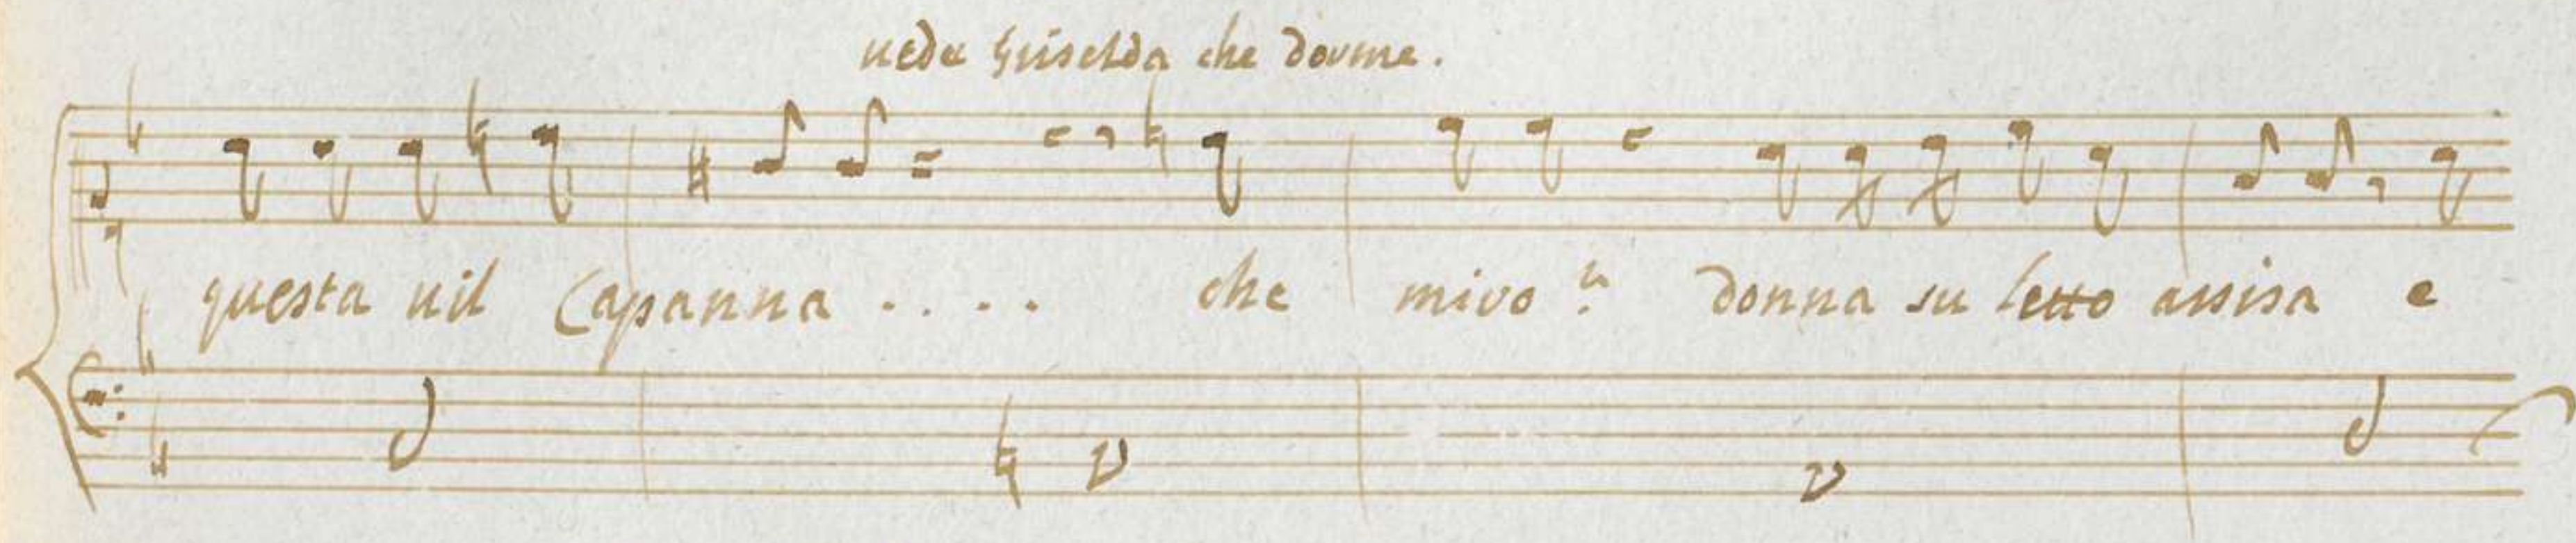 uede Griselda che dorme.
questa uil Capanna . . . . che miro? donna su letto assisa e